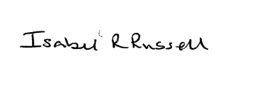 Isabel R Russell